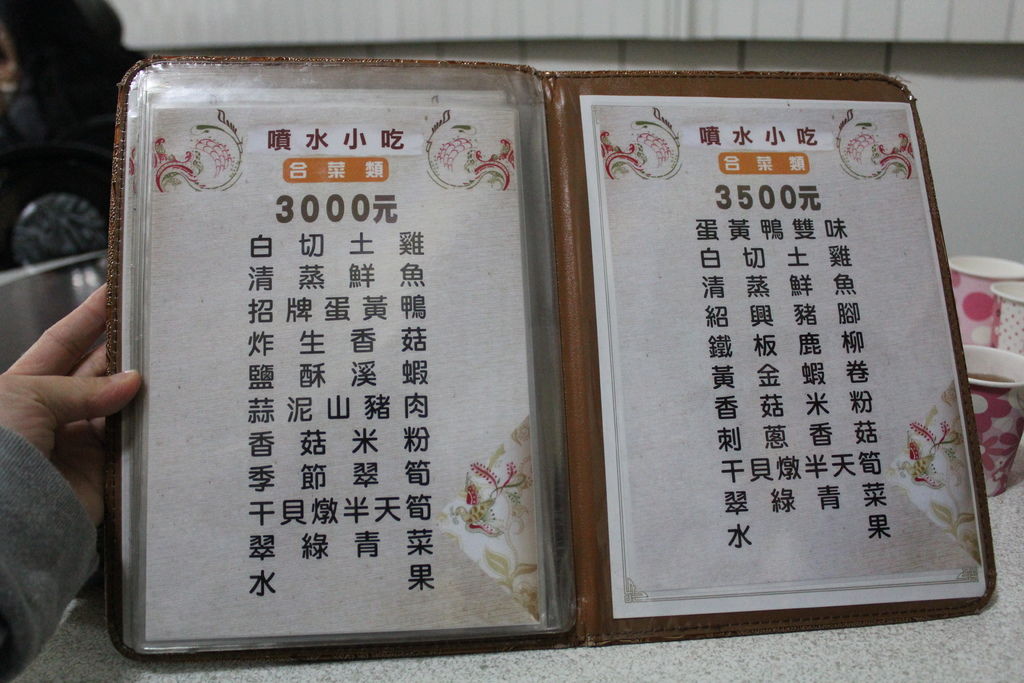 噴水小吃
合菜類
3000元
白切土雞
清蒸鮮魚
招牌蛋黃鴨
炸生香菇
鹽酥溪蝦
蒜泥山豬肉
香菇米粉
季節翠筍
干貝燉半天筍
翠綠青菜
水果
噴水小吃
合菜類
3500元
蛋黃鴨雙味
白切土雞
清蒸鮮魚
紹興豬腳
鐵板鹿柳
黃金蝦卷
香菇米粉
刺蔥香菇
干貝燉半天筍
翠綠青菜
水果